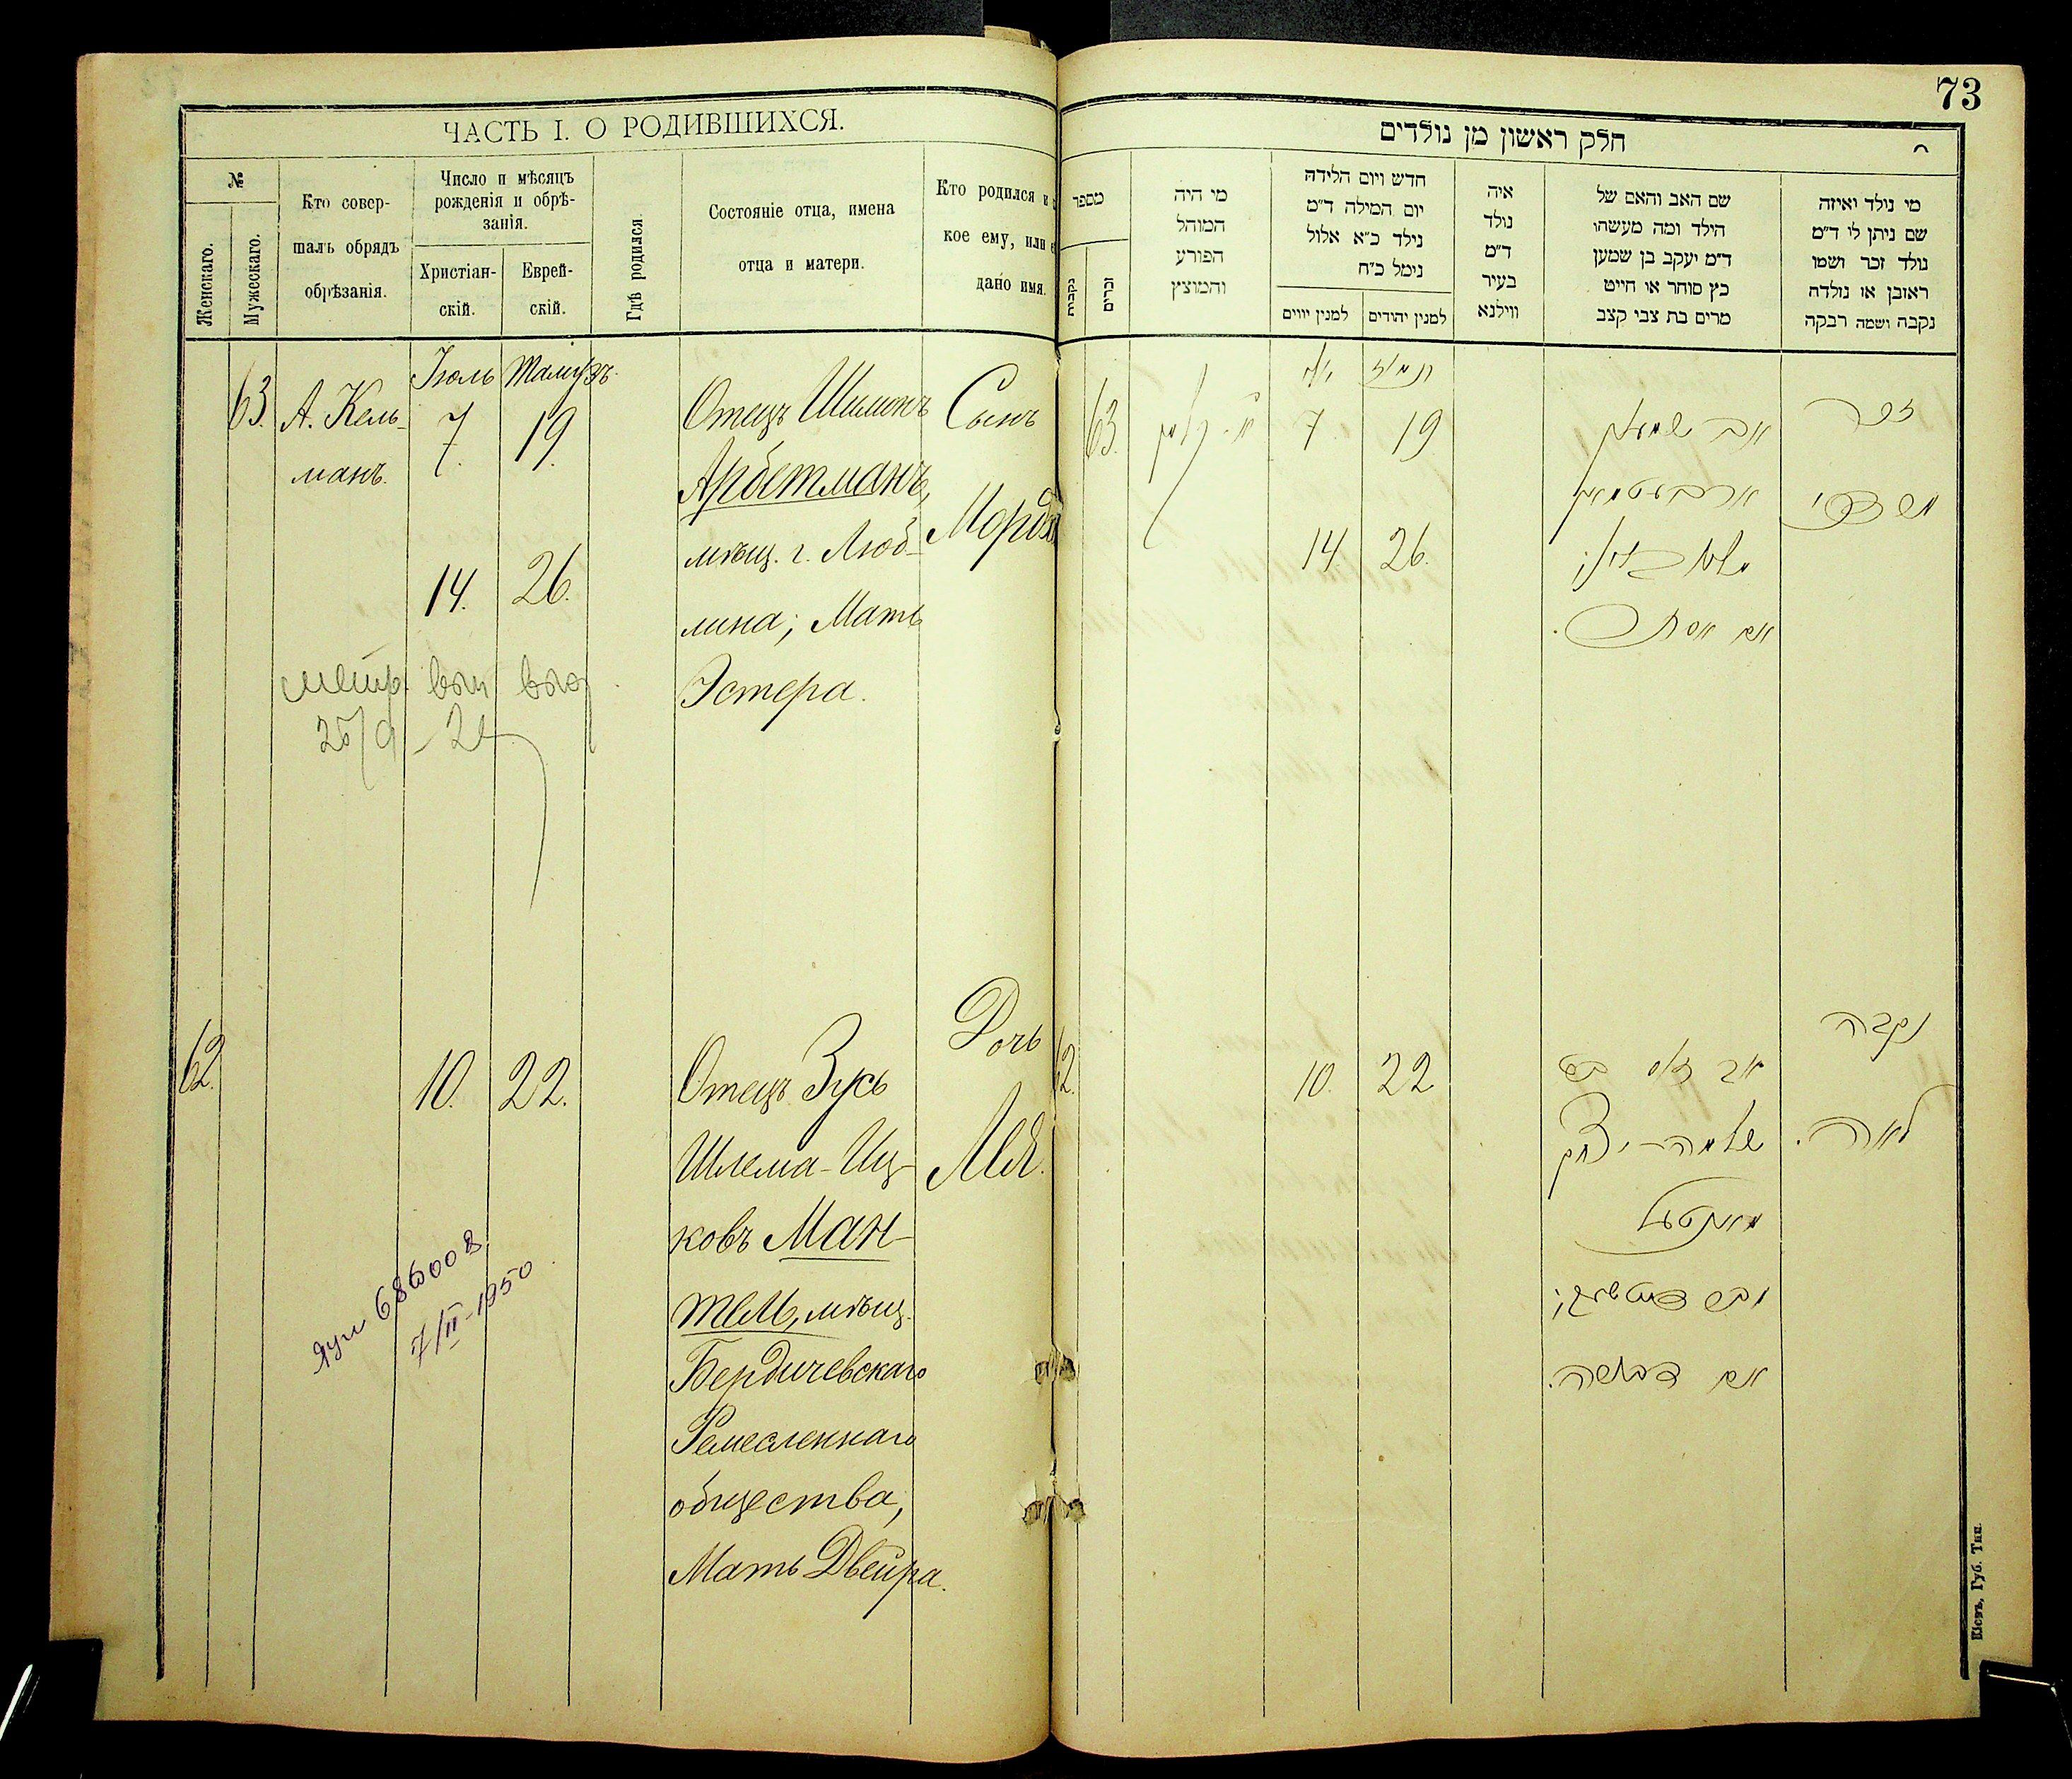 73
ЧАСТЬ I. О РОДИВШИХСЯ.
№
Женскаго.
Мужескаго.
Кто совер-
шалъ обрядъ
обрѣзанія.
Число и мѣсяцъ
рожденія и обрѣ-
занія.
Христіан-
скій.
Еврей-
скій.
Гдѣ родился.
Состояніе отца, имена
отца и матери.
Кто родился и
кое ему, или
дано имя.
63.
А. Кель-
манъ.
Іюль
7.
14.
Тамузъ.
19.
26.
Отецъ Шимонъ
Арбетманъ,
мѣщ. г. Люб-
лина; Мать
Эстера.
Сынъ
метр.
62.
10.
22.
Отецъ Зусь
Шлема-Иц-
ковъ Ман-
тель, мѣщ.
Бердичевскаго
Ремесленнаго
общества,
Мать Двейра.
Дочь
Лея.
7/II-1950
חלק ראשון מן נולדים
מספר
נקבות
זכרים
מי היה
המוהל
הפורע
והמוצץ
חדש ויום הלידה
יום המילה ד״מ
נילד כ״א אלול
נימל כ״ח
למנין יווים
למנין יהודים
איה
נולד
ד״מ
בעיר
ווילנא
שם האב והאם של
הילד ומה מעשהו
ד״מ יעקב בן שמען
כץ סוחר או חייט
מרים בת צבי קצב
מי נילד ואיזה
שם ניתן לו ד״מ
נולד זכר ושמו
ראובן או נולדה
נקבה ושמה רבקה
63.
7.
14.
תמוז
19
26.
אב שמעון
ארבעטמאן
אם אסתר.
זכר
מרדכי
62.
10.
22
שלמה-יצחק
מאנטעל
אם דבושה.
נקבה
לאה.
Кіевъ, Губ. Тип.